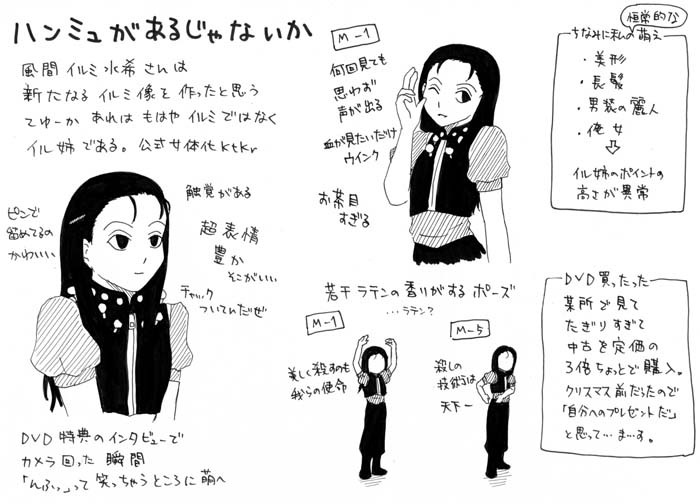 ハンミュがあるじゃないか
風間イルミ水希さんは
新たなるイルミ像を作ったと思う
てゆーか あれは もはやイルミではなく
イル姉である。公式女体化ktkr
触覚がある
ピンで
留めてるの
かわいい
超表情
豊か
そこがいい
チャック
ついてんだぜ
DVD特典のインタビューで
カメラ回った瞬間
「んふっ」って笑っちゃうところに萌へ
M-1
何回見ても
思わず
声が出る
血が見たいだけ
ウインク
お茶目
すぎる
若干ラテンの香りがするポーズ
…ラテン?
M-1
美しく殺すのも
我らの使命
M-5
殺しの
技術は
天下一
恒常的な
ちなみに私の萌え
・美形
・長髪
・男装の麗人
・俺女
⇩
イル姉のポイントの
高さが異常
DVD買ったった
某所で見て
たぎりすぎて
中古を定価の
3倍ちょっとで購入。
クリスマス前だったので
「自分へのプレゼントだ」
と思って…ま…す。